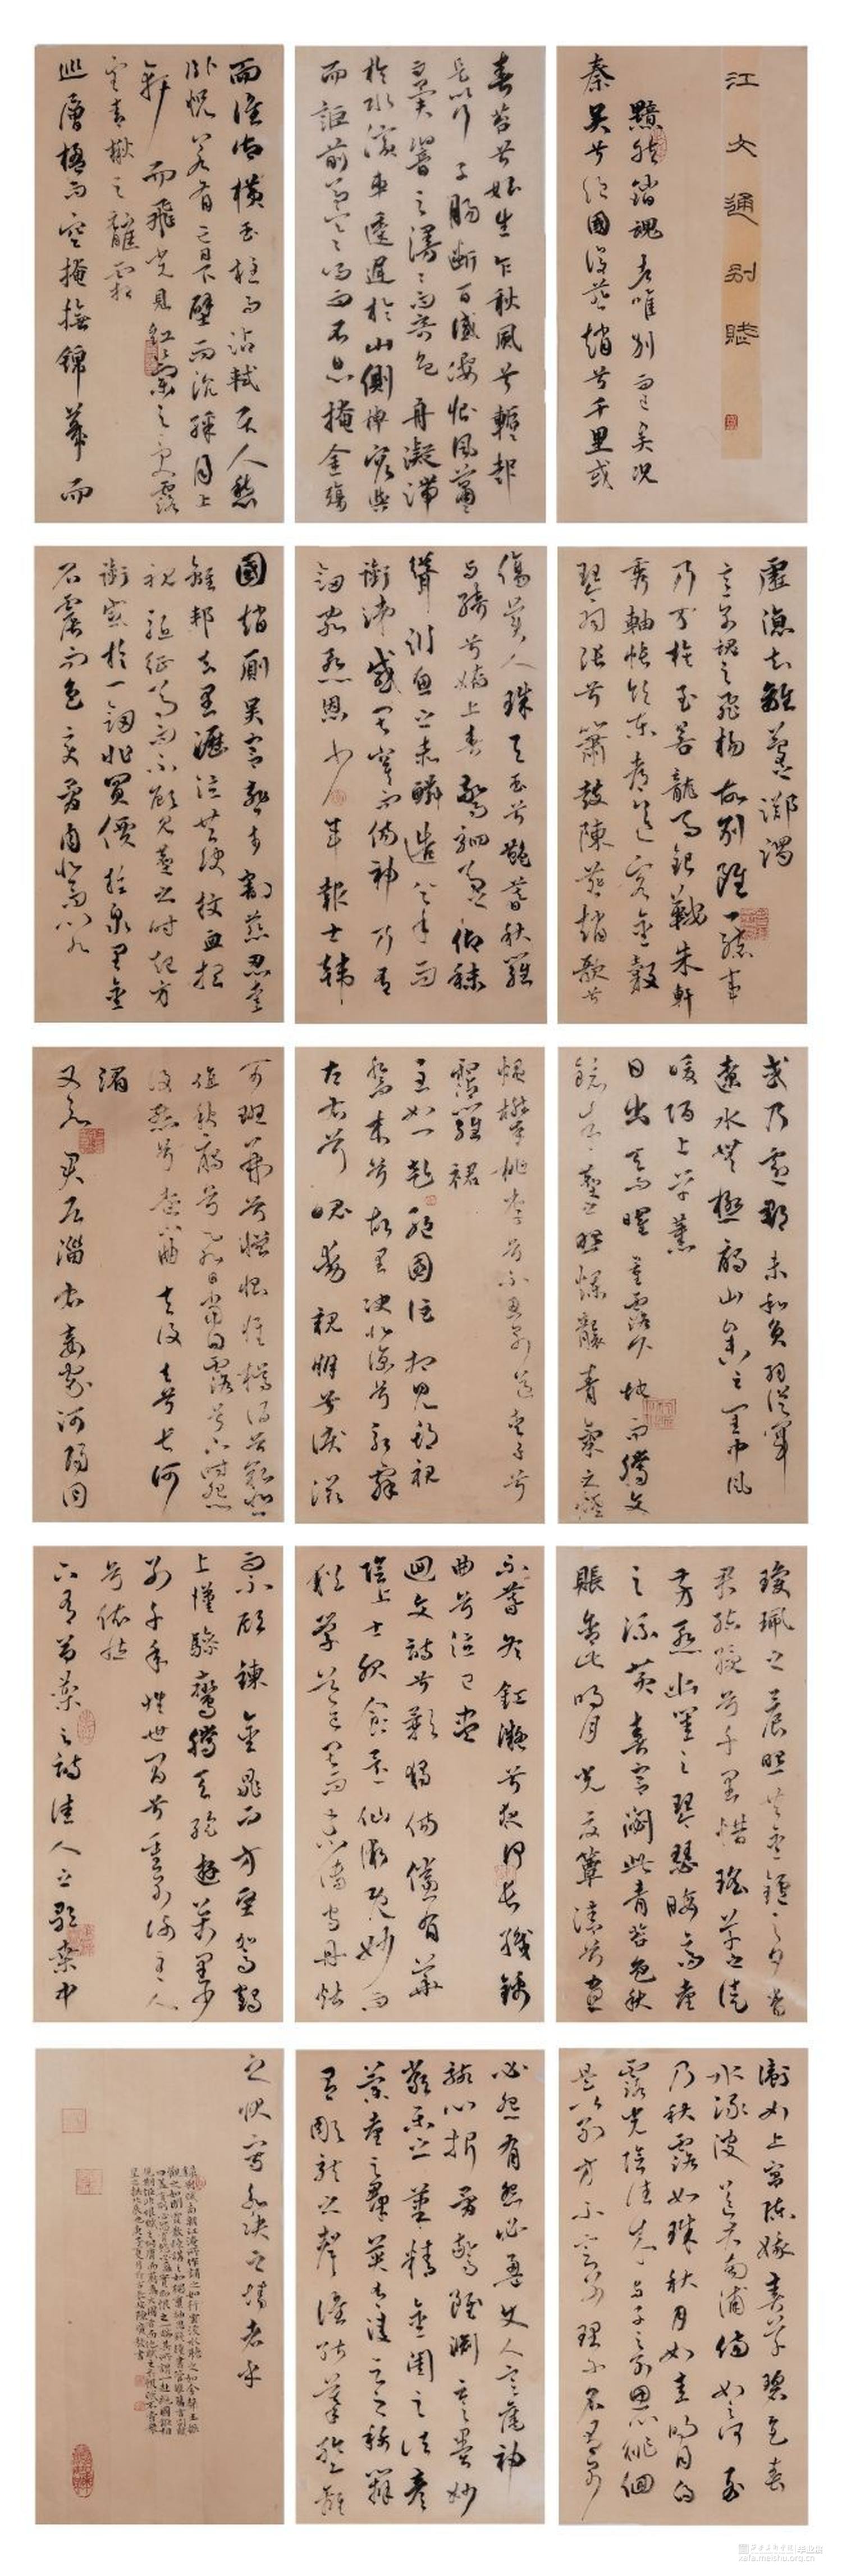 江文通别賦
黯然銷魂者唯别而已矣况
秦吴兮絶國復燕趙兮千里或
春苔兮始生乍秋風兮蹔起
是以行子腸斷百感凄惻風蕭
於水濱車逶遲於山側棹容與
而詎前馬寒鳴而不息掩金觴
而誰御横玉柱而沾軾居人愁
卧怳若有亡日下壁而沉彩月上
軒而飛光見紅蘭之受露
望青楸之離霜
巡層楹而空掩撫錦幕而
虚凉知離夢之躑躅
意别魂之飛揚故别雖一緒事
乃万族至若龍馬銀鞍朱軒
繡軸帳飲東都送客金穀
琴羽張兮簫鼓陳燕趙歌兮
傷美人珠與玉兮艷暮秋羅
與綺兮嬌上春驚駟馬之仰秣
聳淵魚之赤鱗造分手而
銜涕感寂寞而傷神乃有
劍客慙恩少年報士韓
國趙厠吴宫燕市割慈忍愛
離邦去里瀝泣共訣抆血相
視驅征馬而不顧見塵之時起方
銜感於一劍非買價於泉里金
石震而色變骨肉悲而心死
或乃邊郡未和負羽從軍
遼水無極雁山參雲閨中風
暖陌上草薰
日出天而曜景露下地而騰文
鏡朱塵之照爛襲青氣之烟
煴攀桃李兮不忍别送愛子兮
霑羅裙
至如一赴絶國詎相見期視
喬木兮故里決北梁兮永辭
左右兮魂動親朋兮淚滋
可班荆兮憎恨惟樽酒兮叙悲
值秋雁兮飛日當白露兮下時怨
復怨兮遠山曲去復去兮長河
湄
又若君居淄右妾家河陽同
瓊珮之晨照共金爐之夕香
君結綬兮千里惜瑶草之徒
芳慙幽閨之琴瑟晦高臺
之流黄春宫閟此青苔色秋
賬含此明月光夏簟清兮晝
不暮冬釭凝兮夜何長織錦
曲兮泣已盡
迴文詩兮影獨傷儻有華
陰上士服食還仙術既妙而
猶學道已寂而未傳守丹竈
而不顧鍊金鼎而方堅駕鶴
上漢驂鸞騰天蹔遊萬里少
别千年惟世間兮重别謝主人
兮依然
下有芍藥之詩佳人之歌桑中
衛女上宫陳娥春草碧色春
水淥波送君南浦傷如之何至
乃秋露如珠秋月如珪明月白
露光陰往來與子之别思心徘徊
是以别方不定别理千名有别
必怨有怨必盈使人意奪神
駭心折骨驚雖淵雲之墨妙
嚴樂之筆精金閨之諸彦
蘭臺之群英賦有凌雲之稱辯
有雕龍之聲誰能摹暫離
之狀寫永訣之情者乎